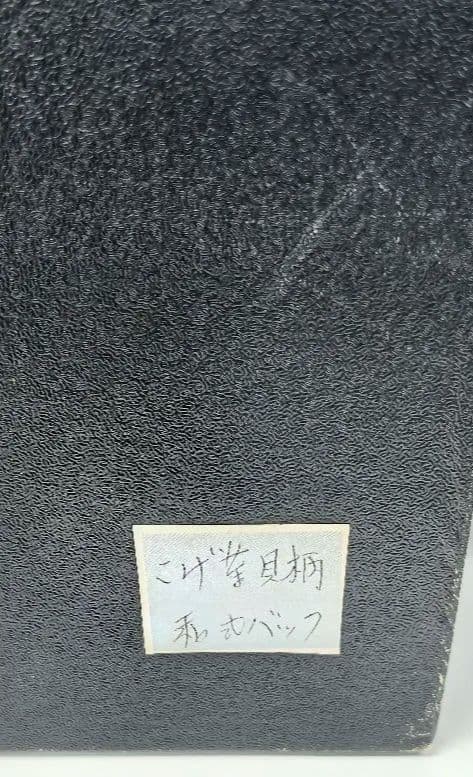 こげ茶貝柄
和式バッフ